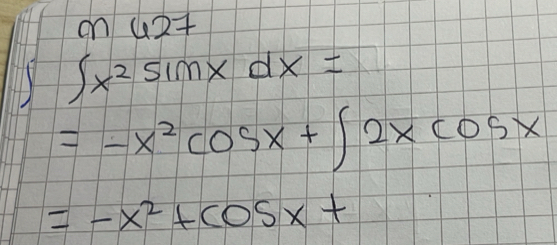 n 427
∫x² sinx dx =
= -x² cosx + ∫2x cosx
= -x² + cosx +